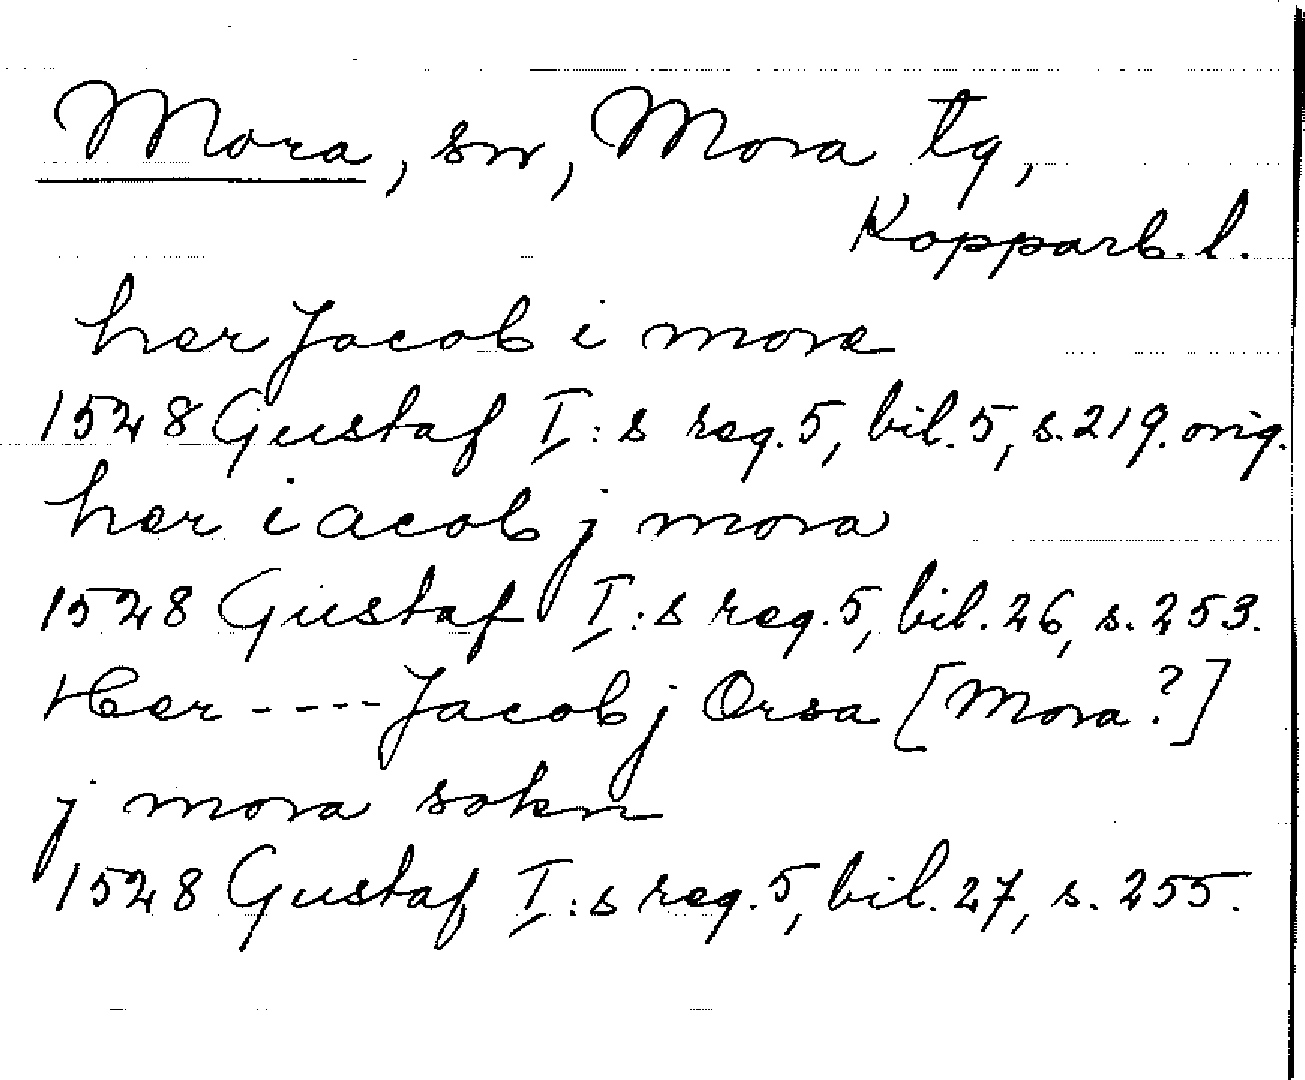 Mora, sn, Mora tg,
Kopparb. l.
her Jacob i more
1528 Gustaf I:s reg. 5, bil. 5, s. 219. orig.
her iacob j mora
1528 Gustaf I:s reg. 5, bil. 26, s. 253.
Her ---- Jacob j Orsa [Mora?]
j mora sokn
1528 Gustaf I:s reg. 5, bil. 27, s. 255.